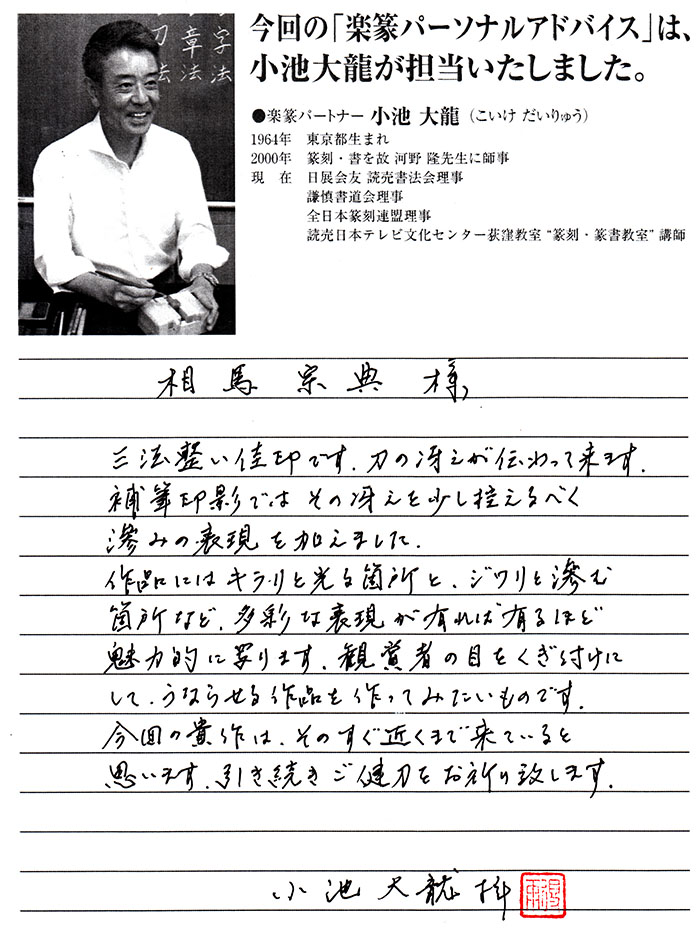 字法
章法
刀法
今回の「楽篆パーソナルアドバイス」は、
小池大龍が担当いたしました。
●楽篆パートナー 小池 大龍（こいけ だいりゅう）
1964年 東京都生まれ
2000年 篆刻・書を故 河野 隆先生に師事
現 在 日展会友 読売書法会理事
謙慎書道会理事
全日本篆刻連盟理事
読売日本テレビ文化センター荻窪教室“篆刻・篆書教室”講師
相馬宗典様
三法整い佳印です。刀の冴えが伝わって来ます。
補筆印影ではその冴えを少し控えるべく
滲みの表現を加えました。
作品にはキラリと光る箇所と、ジワリと滲む
箇所など、多彩な表現が有れば有るほど
魅力的に写ります。観賞者の目をくぎ付けに
して、うならせる作品を作ってみたいものです。
今回の貴作は、そのすぐ近くまで来ていると
思います。引き続きご健刀をお祈り致します。
小池大龍